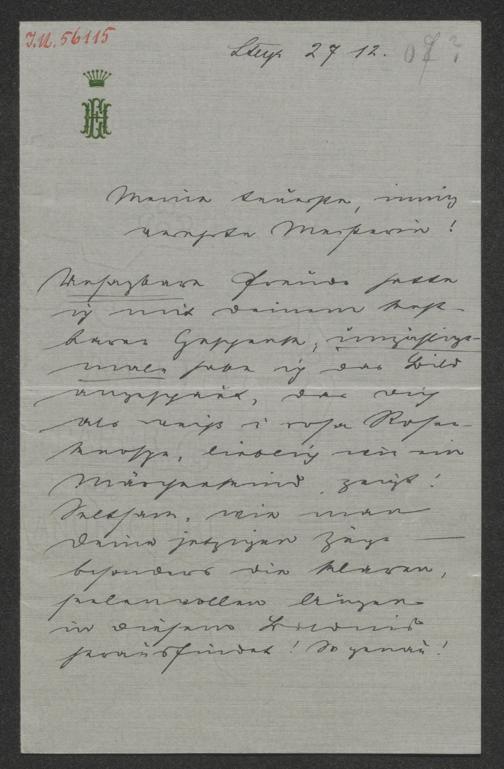 I.N. 56115
Steyr 27 12. 07?
Meine teuerste, innig
verehrte Meisterin!
Unsagbare Freude hatte
ich mit deinem kost-
baren Geschenk, unzählige-
male habe ich das Bild
angeschaut, das dich
als weiß & rosa Rosen-
knospe, lieblich wie ein
Märchenkind, zeigt!
Seltsam, wie man
deine jetzigen Züge —
besonders die klaren,
seelenvollen Augen
in diesem Bildnis
herausfindet! So genau!